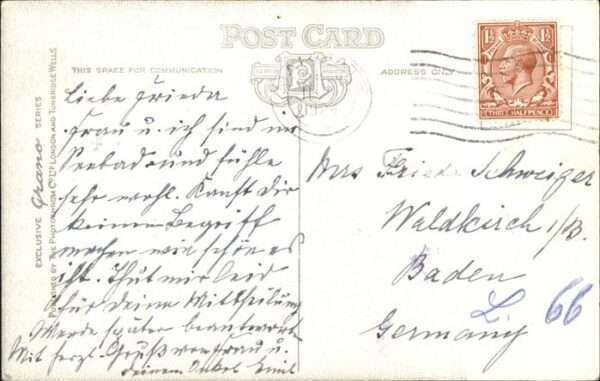 POST CARD
THIS SPACE FOR COMMUNICATION
ADDRESS ONLY
EXCLUSIVE Grano SERIES
PUBLISHED BY THE PHOTOCHROM Co. LTD. LONDON AND TUNBRIDGE WELLS
1½ 1½
THREE HALFPENCE
Liebe Frieda
Frau u. ich sind im
Seebad und fühle
sehr wohl. Kanst Dir
keinen Begriff
machen wie schön es
ist. Thut mir leid
für deine Mittheilung
Werde später beantwort
Mit herzl. Gruß von Frau u.
deinem Onkel Emil
Mrs Frieda Schweizer
Waldkirch i/B.
Baden
Germany
66